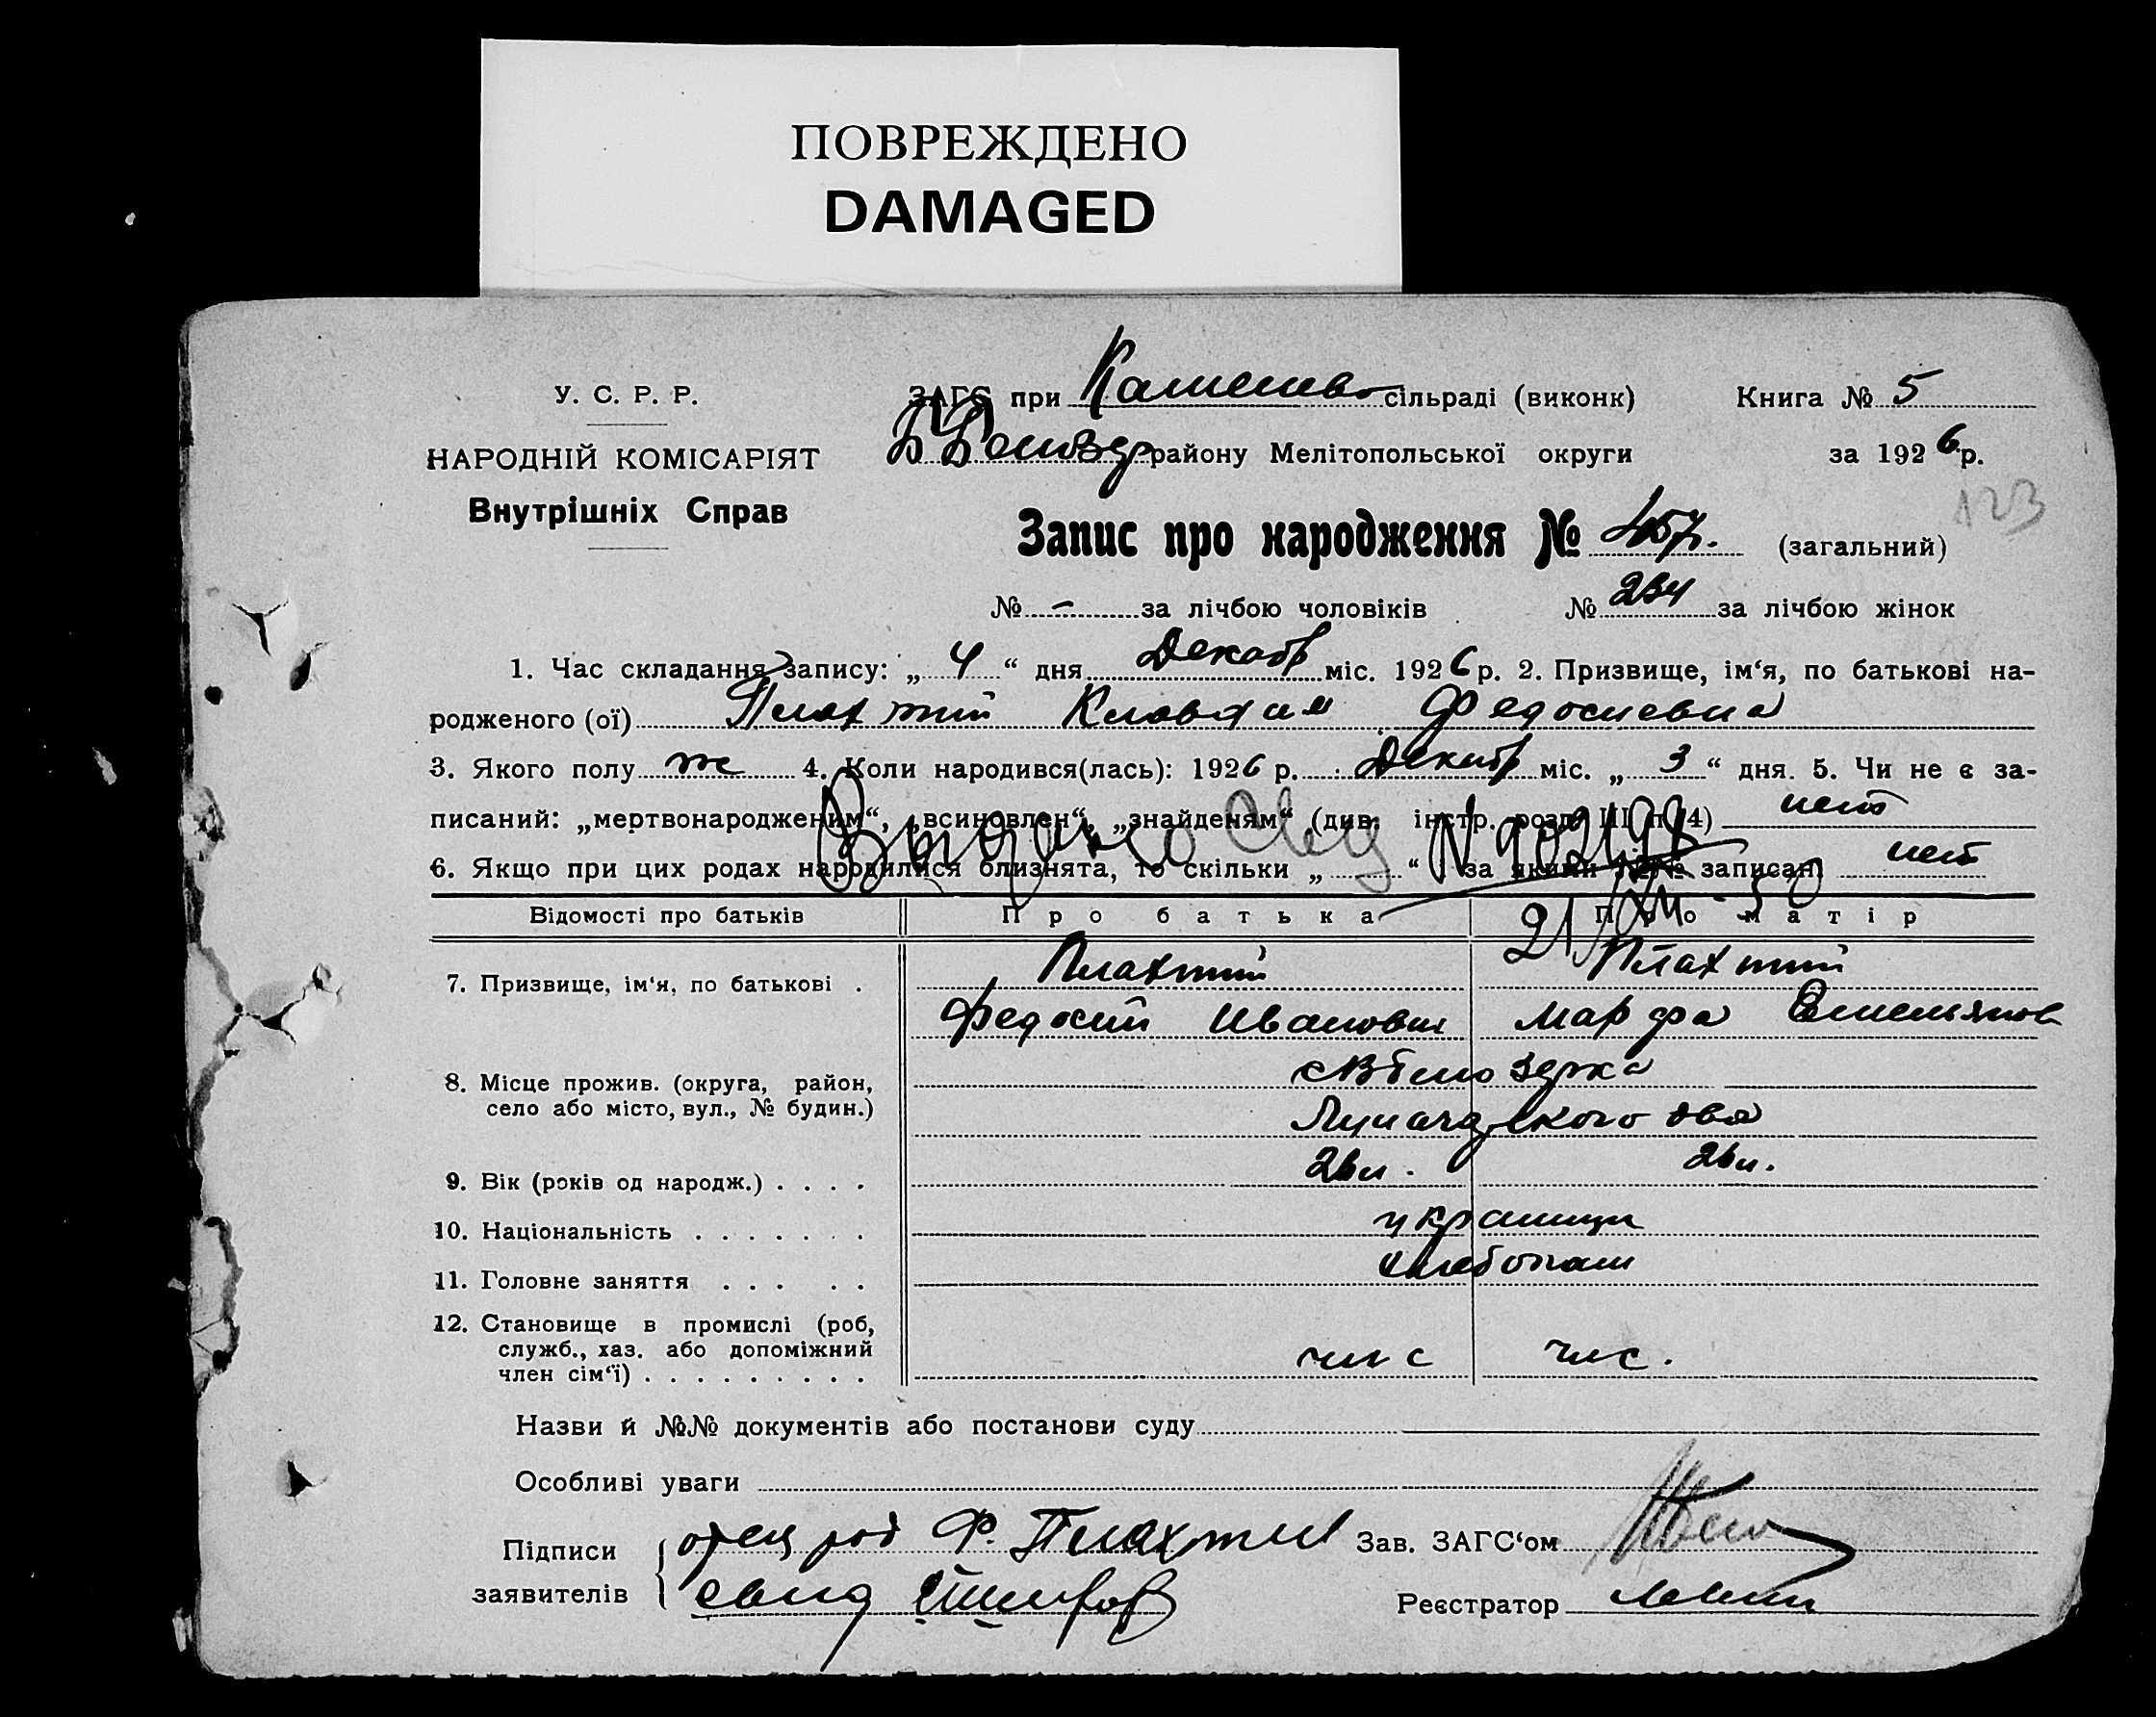 ПОВРЕЖДЕНО
DAMAGED
У. С. Р. Р.
НАРОДНІЙ КОМІСАРІЯТ
Внутрішніх Справ
ЗАГС при сільраді (виконк) Книга № 5
району Мелітопольської округи за 1926 р.
123
Запис про народження № 457. (загальний)
№ - за лічбою чоловіків № 234 за лічбою жінок
1. Час складання запису: „ 4 “ дня Декабр міс. 1926 р. 2. Призвище, ім‘я, по батькові на-
родженого (ої) Плахтий Клавдия Федосиевна
3. Якого полу ж 4. Коли народився(лась): 1926 р. Декабр міс. „ 3 “ дня. 5. Чи не є за-
писаний: „мертвонародженим“, „всиновлен“, „знайденям“ (див. інстр. розд. III п. 4) нет
6. Якщо при цих родах народилися близнята, то скільки „ “ за якими №№ записані нет
Выдано Свид N
Відомості про батьків Про батька Про матір
7. Призвище, ім‘я, по батькові . Плахтий Плахтий
Федосий Иванович Марфа Емельянов
8. Місце прожив. (округа, район,
село або місто, вул., № будин.)
9. Вік (років од народж.) . . . . 26 л. 26 л.
10. Національність . . . . . . . украинцы
11. Головне заняття . . . . . хлебопаш
12. Становище в промислі (роб,
служб., хаз. або допоміжний
член сім‘ї) . . . . . . . . . члс члс.
Назви й №№ документів або постанови суду
Особливі уваги
Підписи заявителів { отец Ф. Плахтий Зав. ЗАГС‘ом
свид Реєстратор